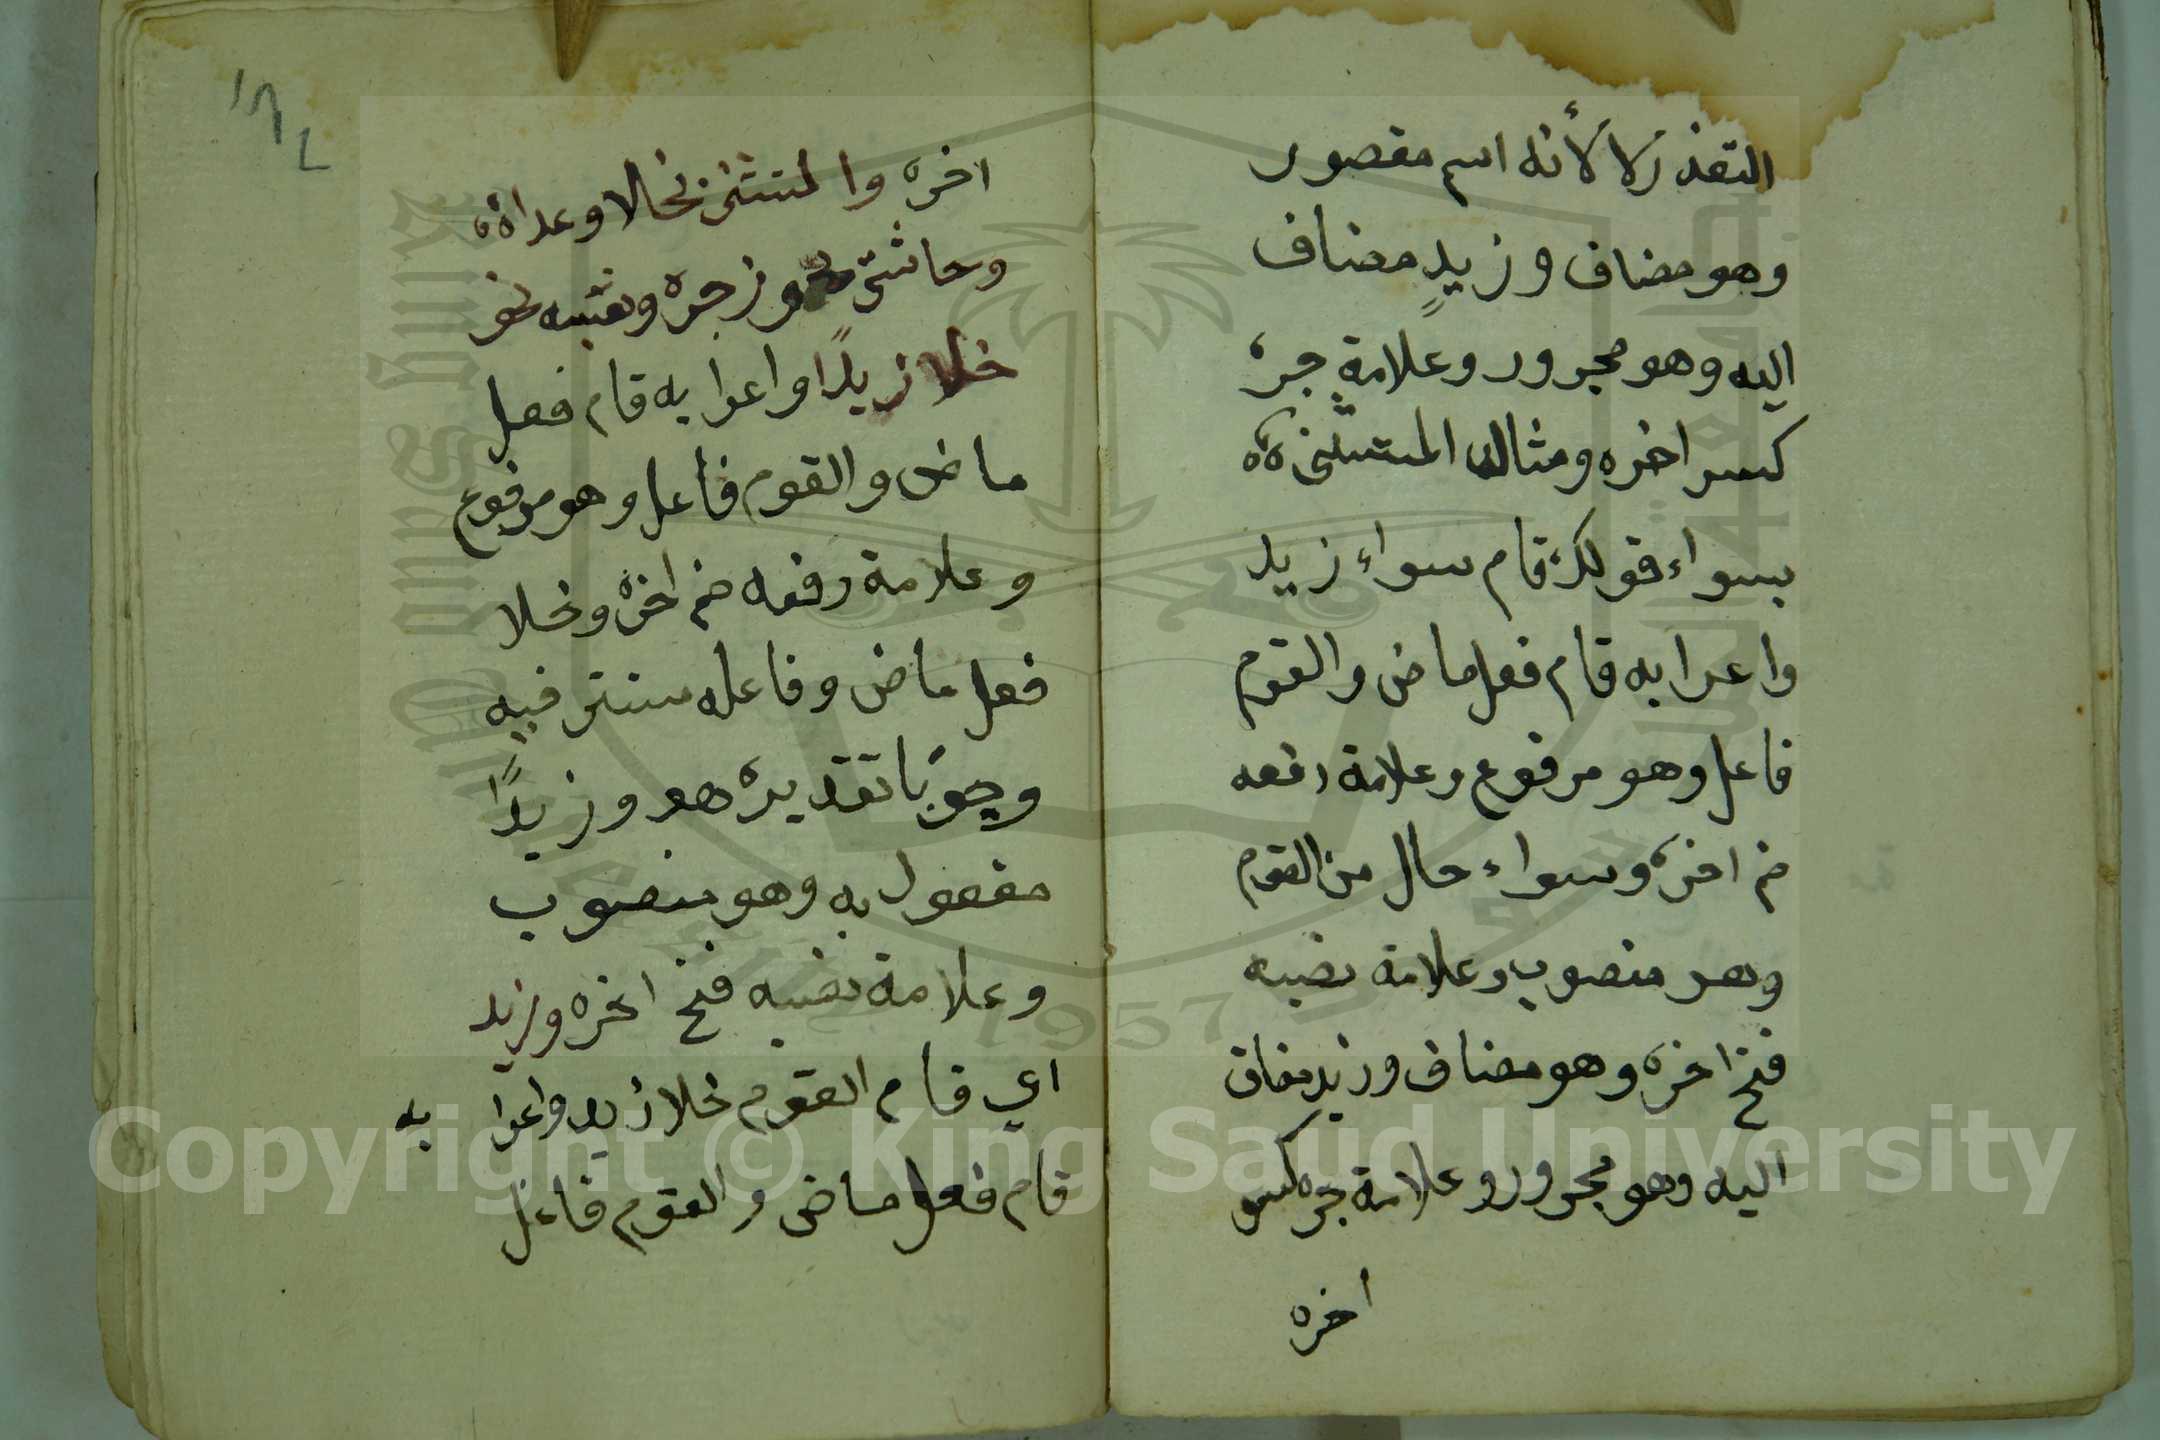 التعذر لا لأنه اسم مقصور
وهو مضاف وزيدٍ مضاف
اليه وهو مجرور وعلامة جره
كسر اخره ومثال المستثنى
بسواء قولك قام سواء زيد
واعرابه قام فعل ماض والقوم
فاعل وهو مرفوع وعلامة رفعه
ضم اخره وسواء حال من القوم
وهو منصوب وعلامة نصبه
فتح اخره وهو مضاف وزيد مضاف
اليه وهو مجرور وعلامة جره كسر
اخره
١٨٢
اخره والمستثنى بخلا وعدا
وحاشى يجوز جره ونصبه نحو
خلا زيدًا واعرابه قام فعل
ماض والقوم فاعل وهو مرفوع
وعلامة رفعه ضم اخره وخلا
فعل ماض وفاعله مستتر فيه
وجوبًا تقديره هو وزيدًا
مفعول به وهو منصوب
وعلامة نصبه فتح اخره وزيد
اي قام القوم خلا زيد واعرا به
قام فعل ماض والقوم فاعل
Copyright © King Saud University
1957